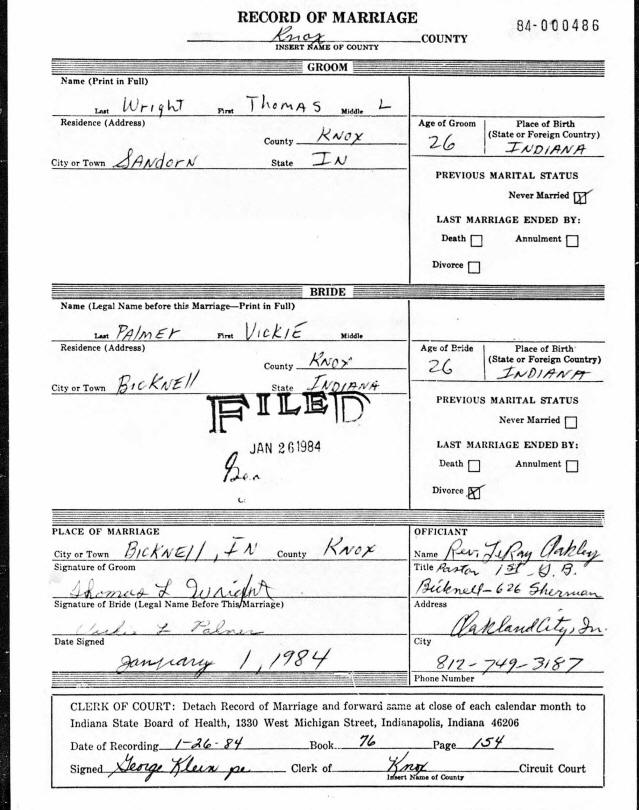 RECORD OF MARRIAGE
84-000486
Knox COUNTY
INSERT NAME OF COUNTY
GROOM
Name (Print in Full)
Last Wright First Thomas Middle L
Residence (Address)
County Knox
City or Town SANdorN State IN
Age of Groom 26
Place of Birth (State or Foreign Country) INDIANA
PREVIOUS MARITAL STATUS
Never Married
LAST MARRIAGE ENDED BY:
Death Annulment
Divorce
BRIDE
Name (Legal Name before this Marriage—Print in Full)
Last PAlmEr First VickiE Middle
Residence (Address)
County KNox
City or Town BickNEll State INDIANA
Age of Bride 26
Place of Birth (State or Foreign Country) INDIANA
PREVIOUS MARITAL STATUS
Never Married
LAST MARRIAGE ENDED BY:
Death Annulment
Divorce
FILED
JAN 26 1984
PLACE OF MARRIAGE
City or Town BickNEll, IN County KNox
Signature of Groom
Thomas L Wright
Signature of Bride (Legal Name Before This Marriage)
Vickie L Palmer
Date Signed
January 1, 1984
OFFICIANT
Name Rev. LeRay Oakley
Title Pastor 1st G.B.
Bicknell-626 Sherman
Address
Oakland City, In.
City
812-749-3187
Phone Number
CLERK OF COURT: Detach Record of Marriage and forward same at close of each calendar month to
Indiana State Board of Health, 1330 West Michigan Street, Indianapolis, Indiana 46206
Date of Recording 1-26-84 Book 76 Page 154
Signed George Klein pc Clerk of Knox Circuit Court
Insert Name of County